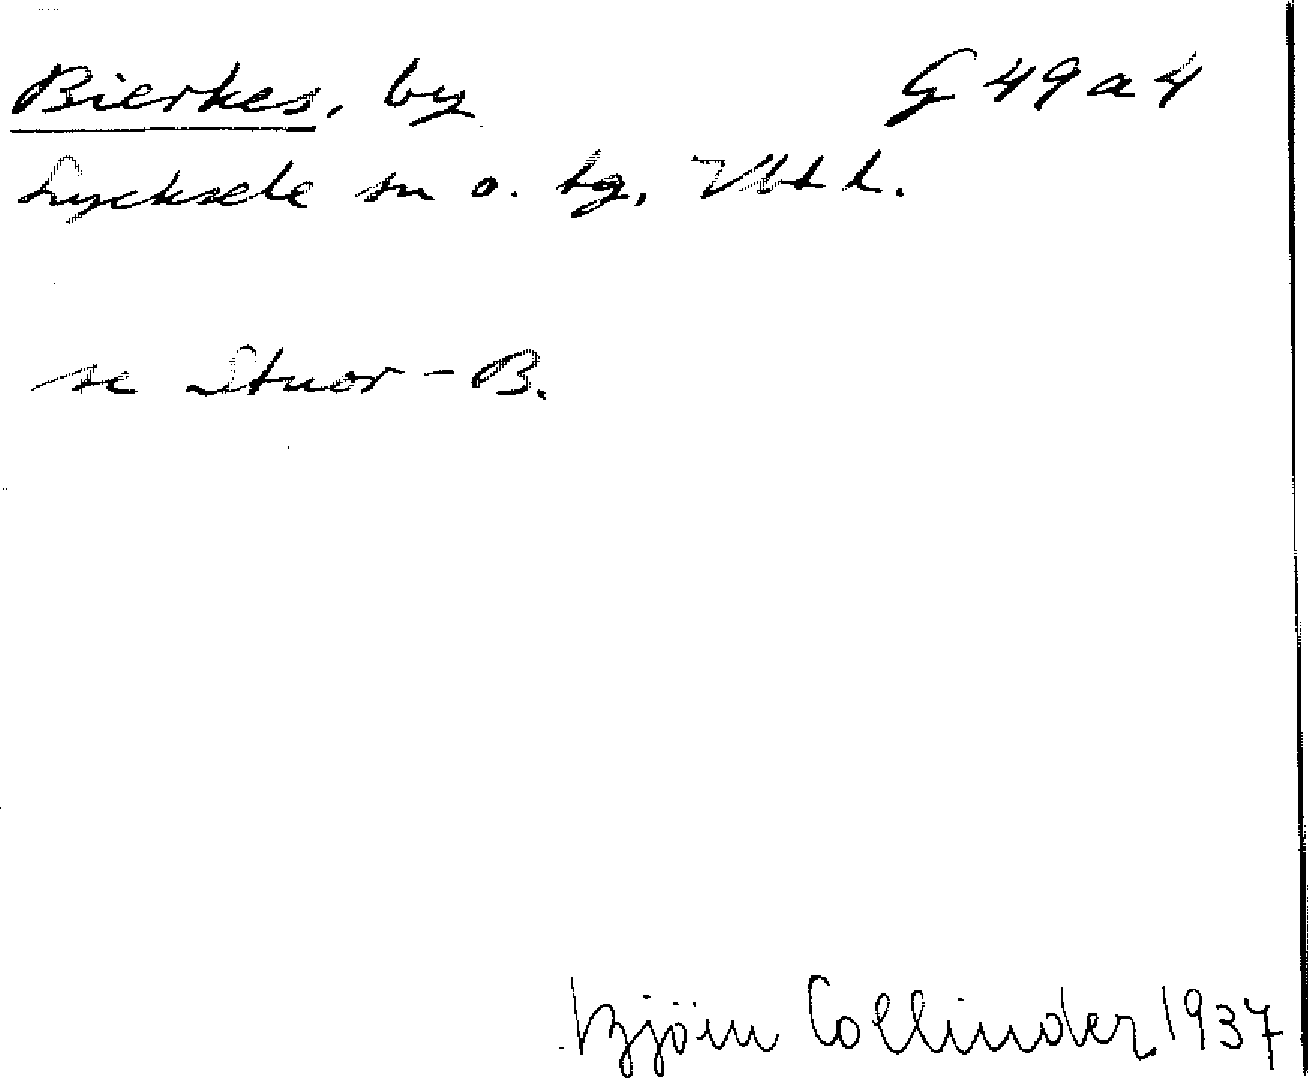 Bierkes, by G 49 a 4
Lycksele sn o. tg, Vbtl.
se Stuor-B.
Björn Collinder 1937